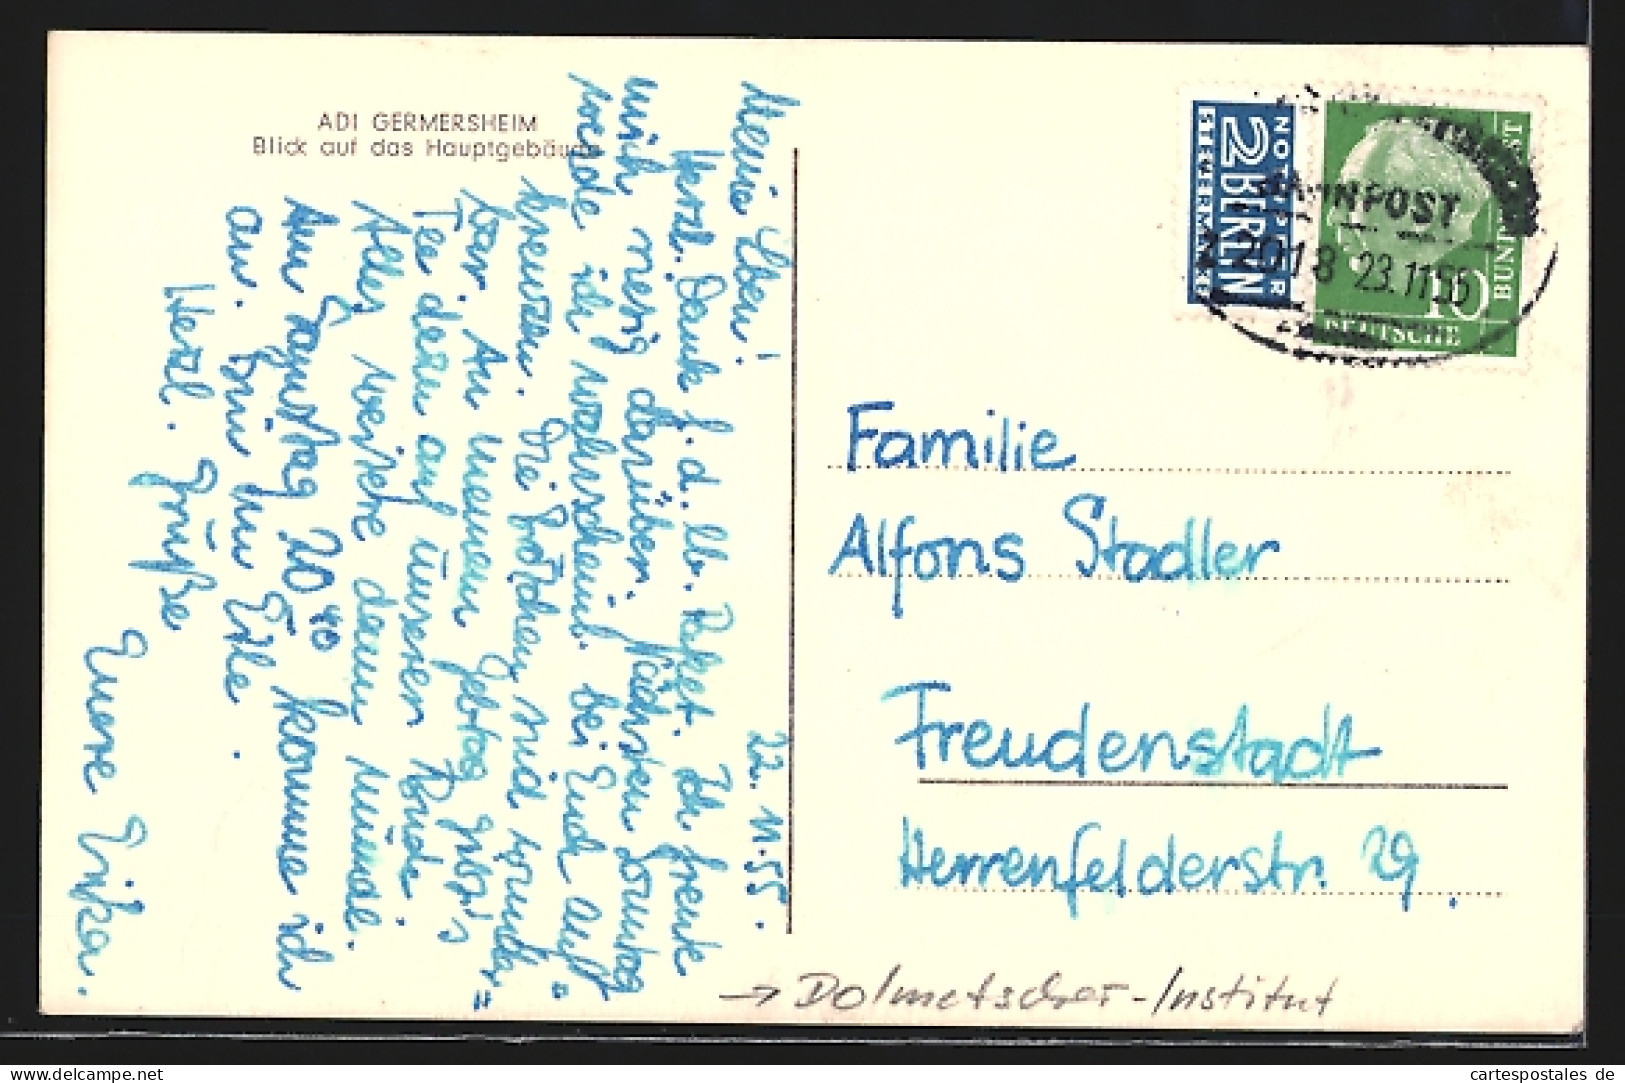 ADI GERMERSHEIM
Blick auf das Hauptgebäude
22. 11. 55.
Meine Lben!
Herzl. Dank f. d. lb. Paket. Ich freute
mich riesig darüber. Nächsten Sonntag
werde ich wahrscheinl. bei Euch auf"
kreuzen. Die Brötchen sind wunder=
bar. An meinem Gebtag gibt's
Tee dazu auf unserer Bude.
Alles weitere dann münde.
Am Samstag 20⁴⁰ komme ich
an. Bin in Eile.
Herzl. Grüße
Eure Erika.
NOTOPFER
2 BERLIN
STEUERMARKE
DEUTSCHE
BUNDESPOST
10
BAHNPOST
Z 2018 23.11.55
Familie
Alfons Stadler
Freudenstadt
Herrenfelderstr. 29.
→ Dolmetscher-Institut
www.cartespostales.de
cartespostales de